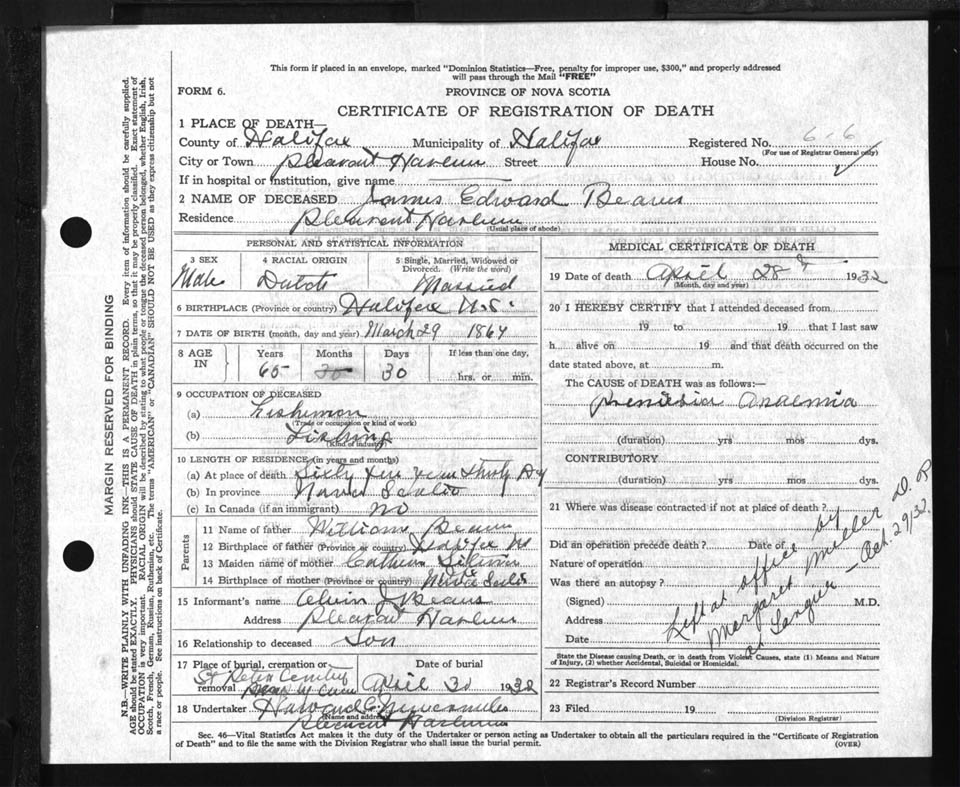 This form if placed in an envelope, marked "Dominion Statistics—Free, penalty for improper use, $300," and properly addressed
will pass through the Mail "FREE"
FORM 6.
PROVINCE OF NOVA SCOTIA
CERTIFICATE OF REGISTRATION OF DEATH
1 PLACE OF DEATH—
County of Halifax Municipality of Halifax Registered No. 6-6
(For use of Registrar General only)
City or Town Street House No.
If in hospital or institution, give name
2 NAME OF DECEASED James Edward
Residence
(Usual place of abode)
PERSONAL AND STATISTICAL INFORMATION
3 SEX 4 RACIAL ORIGIN 5 Single, Married, Widowed or
Divorced. (Write the word)
Male Dutch Married
6 BIRTHPLACE (Province or country) Halifax N.S.
7 DATE OF BIRTH (month, day and year) March 29 1867
8 AGE IN Years Months Days If less than one day,
65 30 30 hrs. or min.
9 OCCUPATION OF DECEASED
(a) Fishermon
(Trade or occupation or kind of work)
(b) Fishing
(Kind of industry)
10 LENGTH OF RESIDENCE (in years and months)
(a) At place of death Sixty
(b) In province
(c) In Canada (if an immigrant) no
Parents
11 Name of father William
12 Birthplace of father (Province or country)
13 Maiden name of mother
14 Birthplace of mother (Province or country)
15 Informant's name
Address
16 Relationship to deceased Son
17 Place of burial, cremation or removal Date of burial
St Peter April 30 1932
18 Undertaker
(Name and address)
MEDICAL CERTIFICATE OF DEATH
19 Date of death April 28 1932
(Month, day and year)
20 I HEREBY CERTIFY that I attended deceased from
19 to 19 that I last saw
h alive on 19 and that death occurred on the
date stated above, at m.
The CAUSE of DEATH was as follows:—
Anaemia
(duration) yrs mos dys.
CONTRIBUTORY
(duration) yrs. mos. dys.
21 Where was disease contracted if not at place of death?
Did an operation precede death? Date of
Nature of operation
Was there an autopsy?
(Signed) M.D.
Address
Date
Left at office by
Margaret Miller
State the Disease causing Death, or in death from Violent Causes, state (1) Means and Nature
of Injury, (2) whether Accidental, Suicidal or Homicidal.
22 Registrar's Record Number
23 Filed 19
(Division Registrar)
Sec. 46—Vital Statistics Act makes it the duty of the Undertaker or person acting as Undertaker to obtain all the particulars required in the "Certificate of Registration
of Death" and to file the same with the Division Registrar who shall issue the burial permit.
(OVER)
MARGIN RESERVED FOR BINDING
N.B.—WRITE PLAINLY WITH UNFADING INK—THIS IS A PERMANENT RECORD. Every item of information should be carefully supplied.
AGE should be stated EXACTLY. PHYSICIANS should STATE CAUSE OF DEATH in plain terms, so that it may be properly classified. Exact statement of
OCCUPATION is very important. RACIAL ORIGIN will be described by stating to what people or tongue the deceased person belonged, whether English, Irish,
Scotch, French, German, Russian, Ruthenian, etc. The terms "AMERICAN" or "CANADIAN" SHOULD NOT BE USED as they express citizenship but not
a race or people. See instructions on back of Certificate.